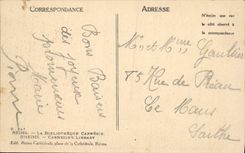 CORRESPONDANCE
Bons Baisers
des joyeux
promeneurs
Marie
Pierre
ADRESSE
N'écrire que sur
le côté réservé à
la correspondance
Mr et Mme Gaultier
75 Rue de
Le Mans
Sarthe
REIMS. — LA BIBLIOTHÈQUE CARNEGIE.
RHEIMS. — CARNEGIE'S LIBRARY
Edit. Reims-Cathédrale, place de la Cathédrale, Reims